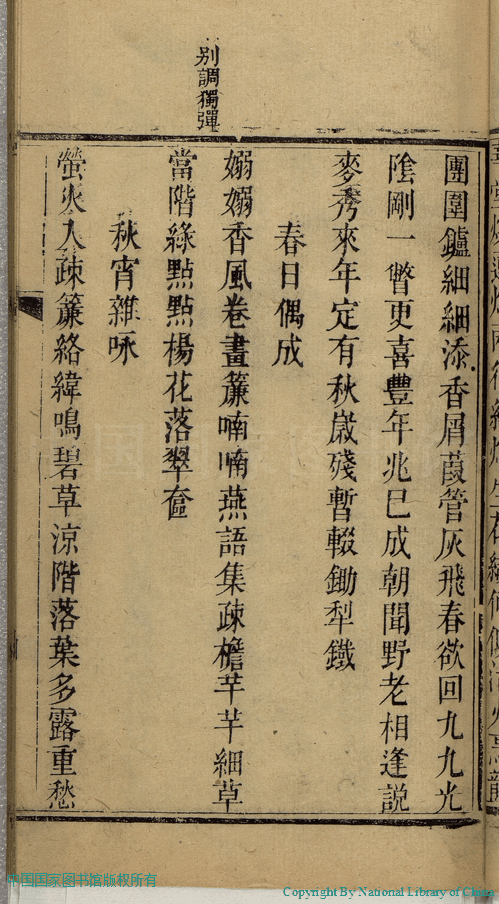 別調獨彈
團圍鑪細細添香屑葭管灰飛春欲回九九光
陰剛一瞥更喜豐年兆已成朝聞野老相逢説
麥秀來年定有秋歲殘暫輟鋤犁鐵
春日偶成
嫋嫋香風卷畫簾喃喃燕語集疎檐芊芊細草
當階綠點點楊花落翠奩
秋宵雜咏
螢火入疎簾絡緯鳴碧草涼階落葉多露重愁
中国国家图书馆版权所有
Copyright By National Library of China